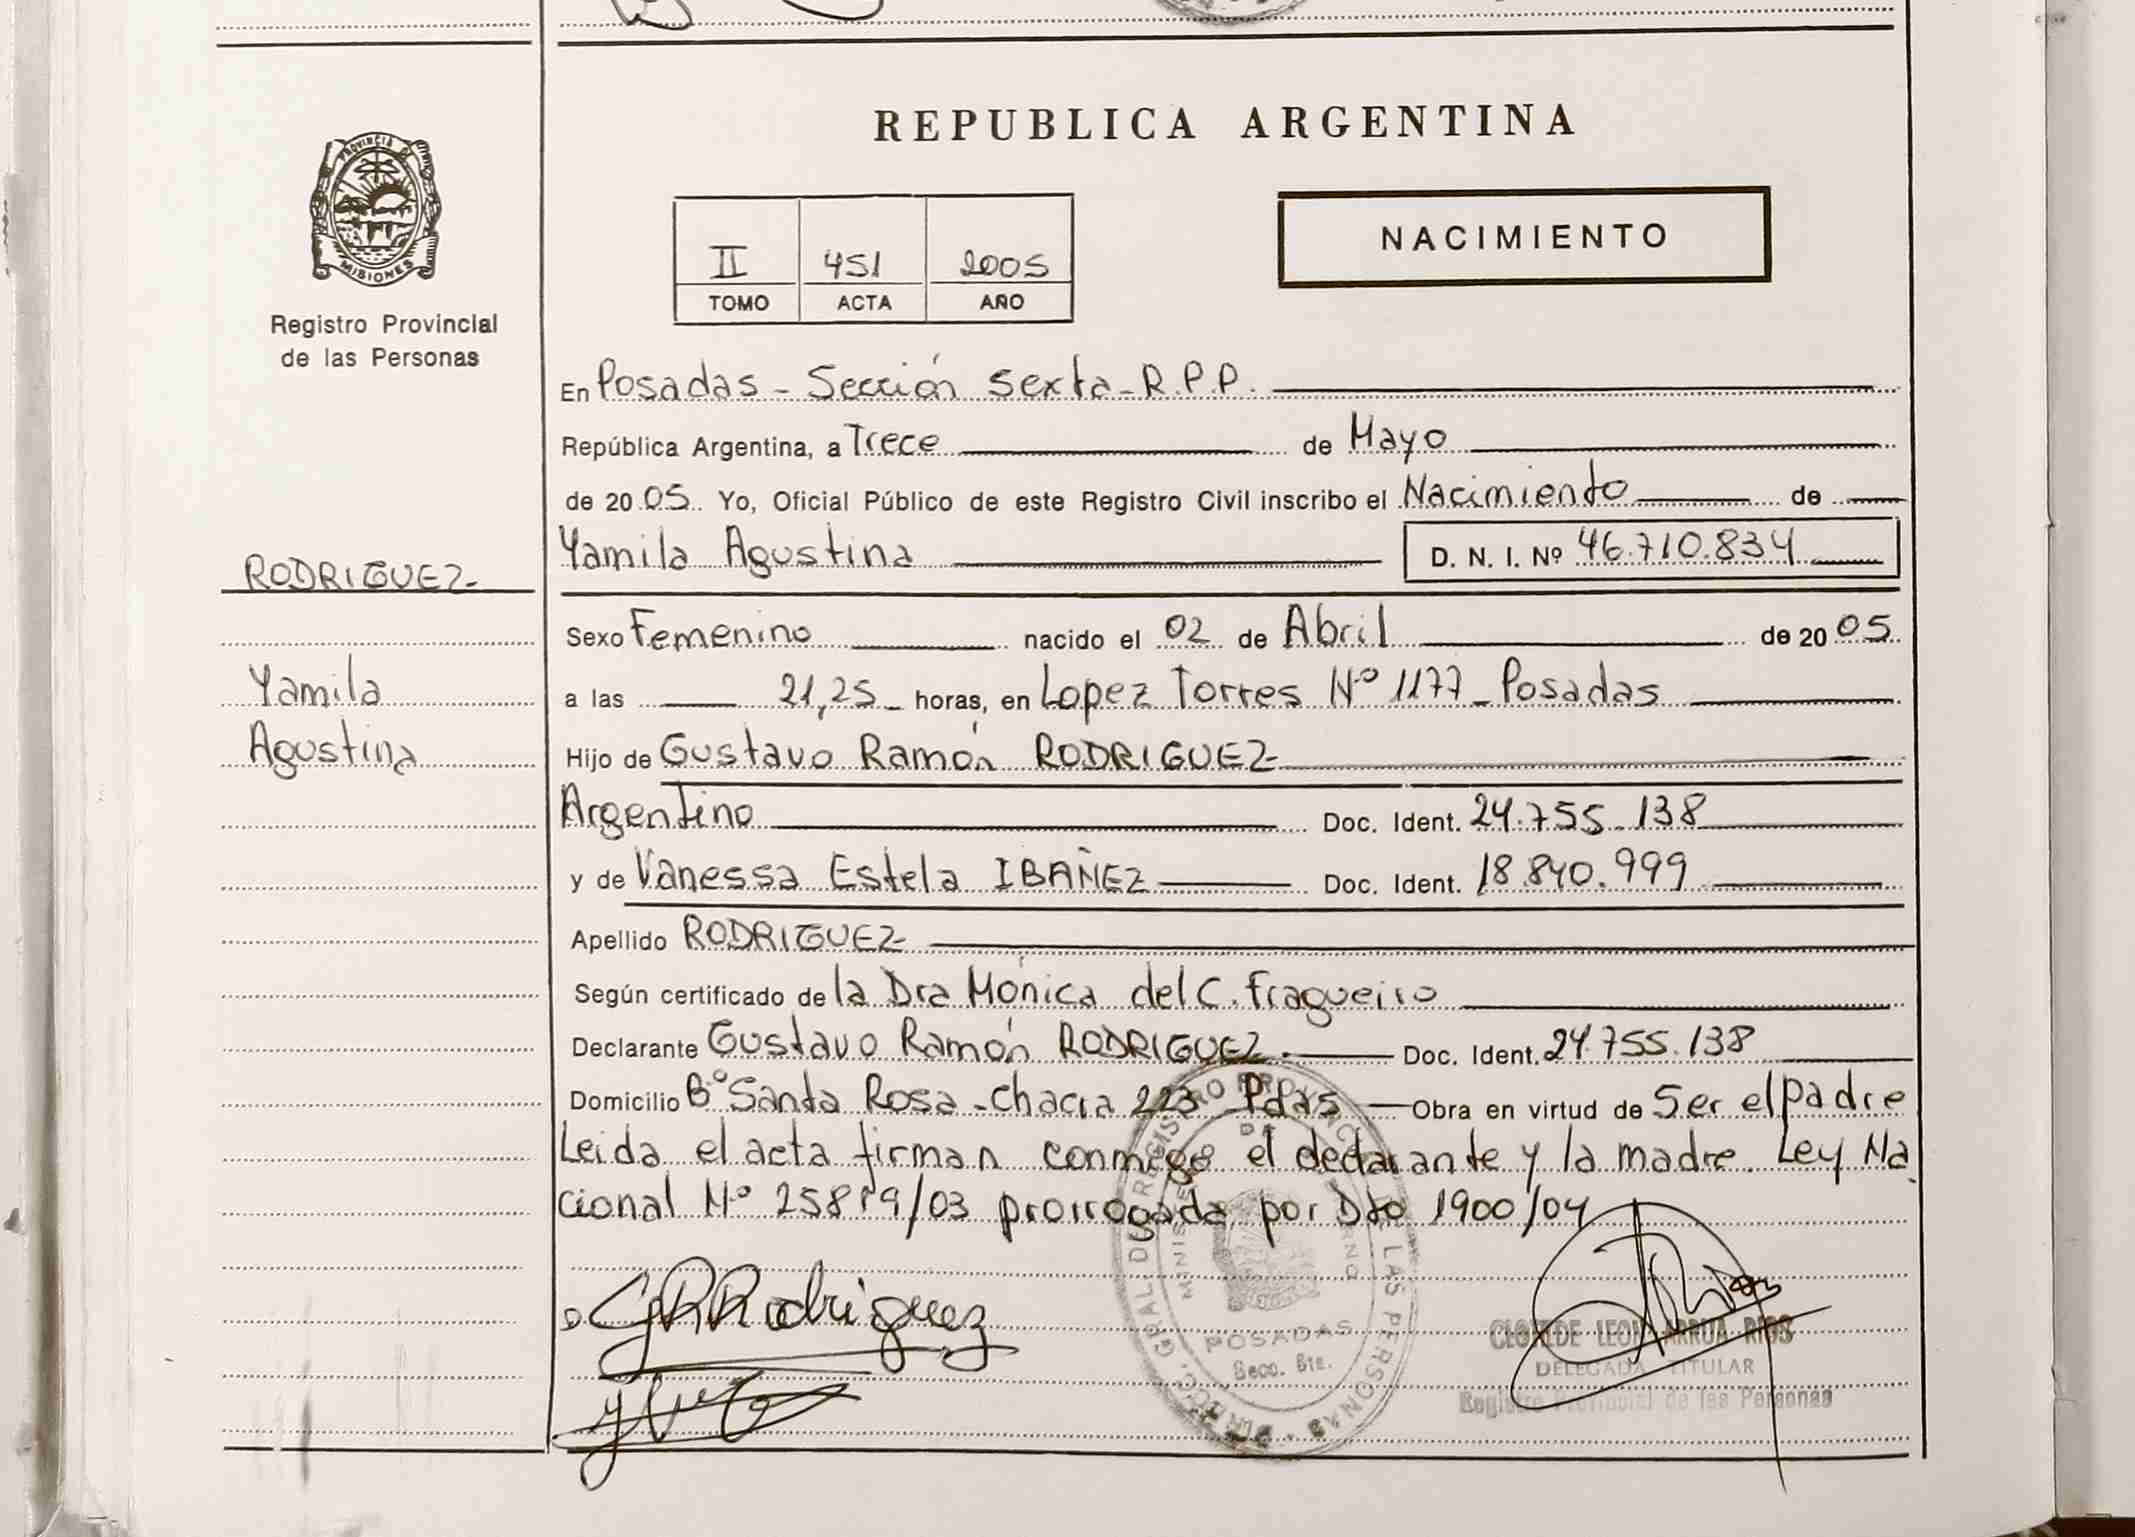 PROVINCIA DE
MISIONES
Registro Provincial
de las Personas
RODRIGUEZ
Yamila
Agustina
REPUBLICA ARGENTINA
II 451 2005
TOMO ACTA AÑO
NACIMIENTO
En Posadas - Sección Sexta - R.P.P.
República Argentina, a Trece de Mayo
de 2005. Yo, Oficial Público de este Registro Civil inscribo el Nacimiento de
Yamila Agustina D. N. I. Nº 46.710.834
Sexo Femenino nacido el 02 de Abril de 2005
a las 21,25 horas, en Lopez Torres Nº 1177 - Posadas
Hijo de Gustavo Ramón RODRIGUEZ
Argentino Doc. Ident. 24.755.138
y de Vanessa Estela IBAÑEZ Doc. Ident. 18.840.999
Apellido RODRIGUEZ
Según certificado de la Dra Mónica del C. Fragueiro
Declarante Gustavo Ramón RODRIGUEZ. Doc. Ident. 24.755.138
Domicilio Bº Santa Rosa - Chacra 223 Pdas Obra en virtud de Ser el padre
Leida el acta firman conmigo el declarante y la madre. Ley Na
cional Nº 25819/03 prorrogada por Dto 1900/04
GRRodriguez
DIRECC. GRAL. DE REGISTRO PROVINC. DE LAS PERSONAS
POSADAS
Secc. 6ta.
CLOTILDE LEON ARRUA RIOS
DELEGADA TITULAR
Registro Provincial de las Personas